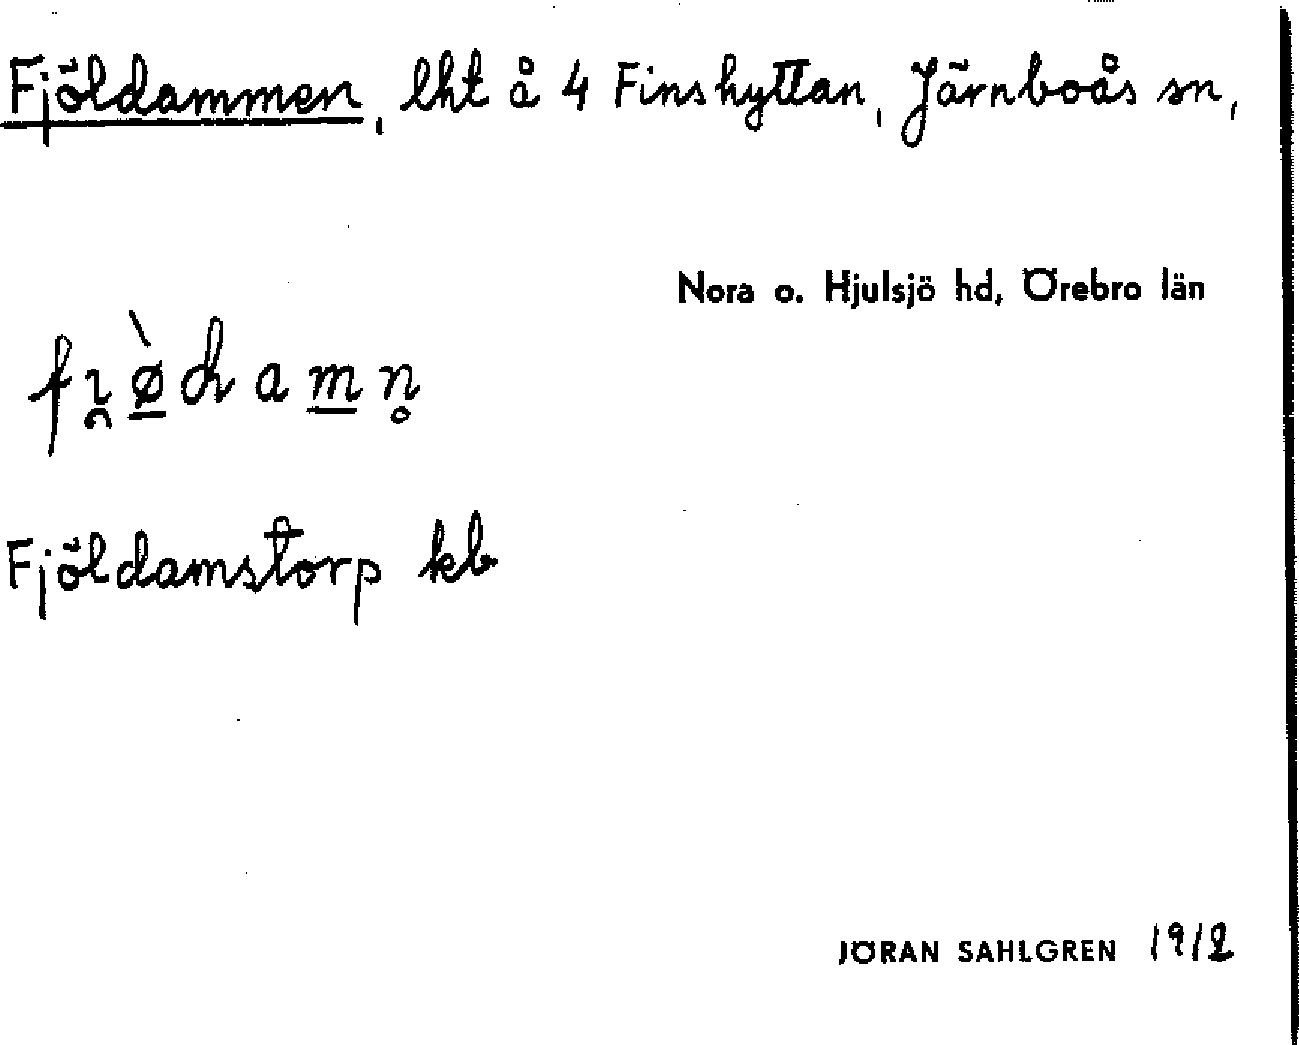 Fjöldammen, lht å 4 Finshyttan, Järnboås sn,
Nora o. Hjulsjö hd, Örebro län
Fjöldamstorp kb
JÖRAN SAHLGREN 1912